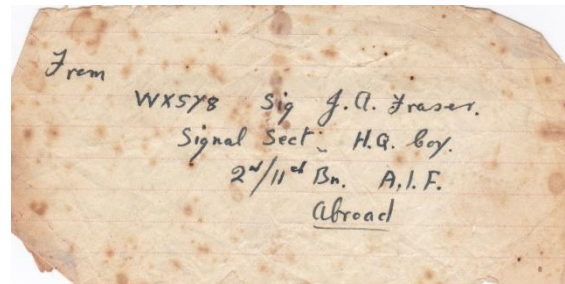 From
WX578 Sig J.A. Fraser.
Signal Sect: H.Q. Coy.
2nd/11th Bn. A.I.F.
Abroad